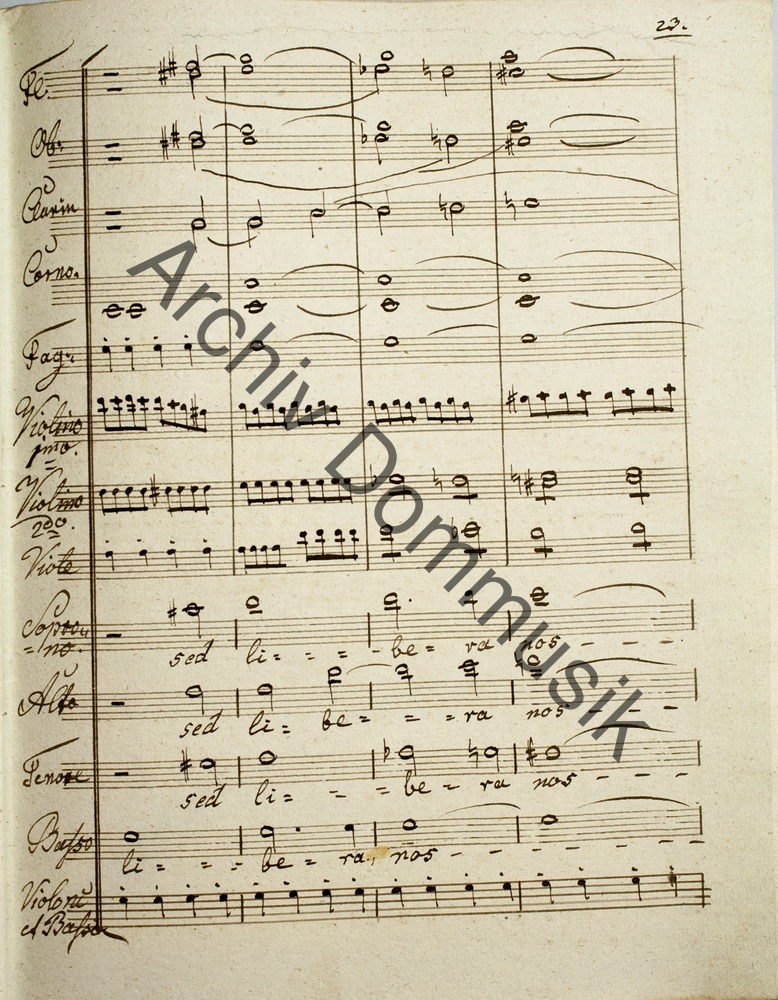 23.
Fl:
Ob:
Clarin
Corno.
Fag:
Violino
1mo.
Violino
2do.
Viole
Sopra=
=no.
sed li= = = - be= ra nos - - -
Alto
sed li= be= = =ra nos - - -
Tenore
sed li= - = be= ra nos - - - -
Basso
li= = = be= ra nos - - - - -
Violone
et Basso
Archiv Dommusik